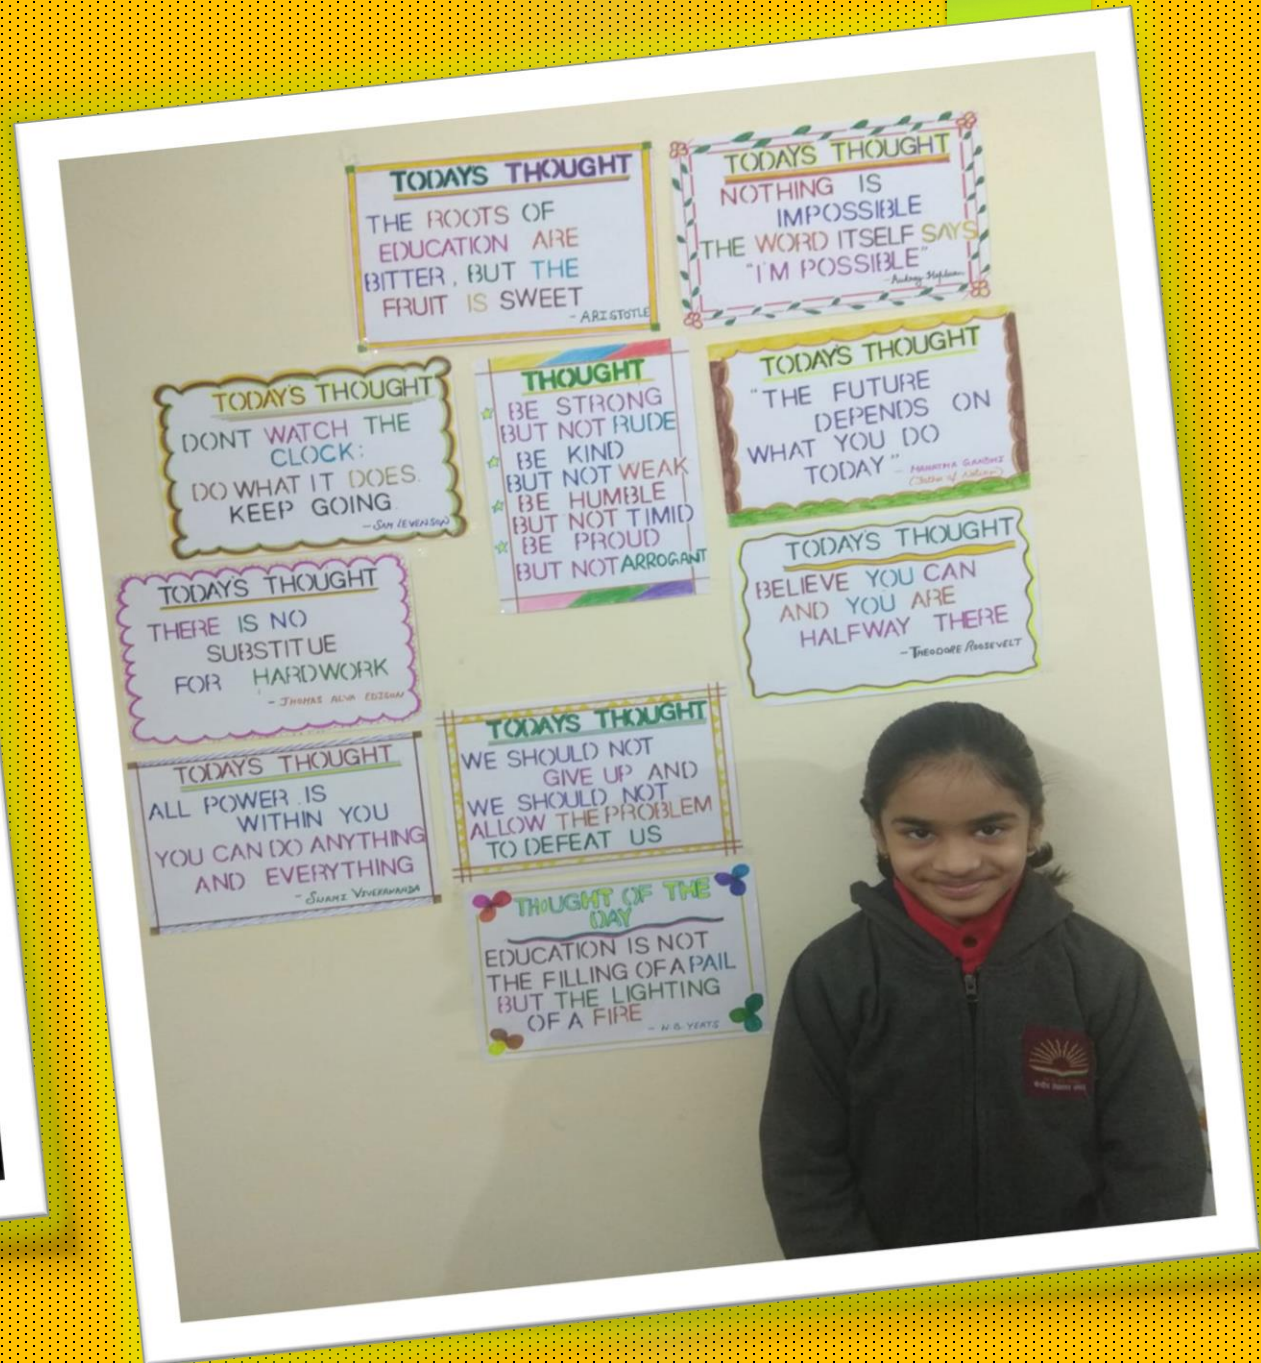 TODAYS THOUGHT
THE ROOTS OF
EDUCATION ARE
BITTER, BUT THE
FRUIT IS SWEET
- ARISTOTLE
TODAYS THOUGHT
NOTHING IS
IMPOSSIBLE
THE WORD ITSELF SAYS
"I'M POSSIBLE"
TODAY'S THOUGHT
DONT WATCH THE
CLOCK:
DO WHAT IT DOES.
KEEP GOING
- SAM LEVENSON
THOUGHT
BE STRONG
BUT NOT RUDE
BE KIND
BUT NOT WEAK
BE HUMBLE
BUT NOT TIMID
BE PROUD
BUT NOT ARROGANT
TODAY'S THOUGHT
"THE FUTURE
DEPENDS ON
WHAT YOU DO
TODAY" - MAHATMA GANDHI
(Father of Nation)
TODAY'S THOUGHT
THERE IS NO
SUBSTITUE
FOR HARDWORK
- THOMAS ALVA EDISON
TODAY'S THOUGHT
BELIEVE YOU CAN
AND YOU ARE
HALFWAY THERE
- THEODORE ROOSEVELT
TODAYS THOUGHT
ALL POWER IS
WITHIN YOU
YOU CAN DO ANYTHING
AND EVERYTHING
- SWAMI VIVEKANANDA
TODAYS THOUGHT
WE SHOULD NOT
GIVE UP AND
WE SHOULD NOT
ALLOW THE PROBLEM
TO DEFEAT US
THOUGHT OF THE
DAY
EDUCATION IS NOT
THE FILLING OF A PAIL
BUT THE LIGHTING
OF A FIRE
- W.B. YEATS